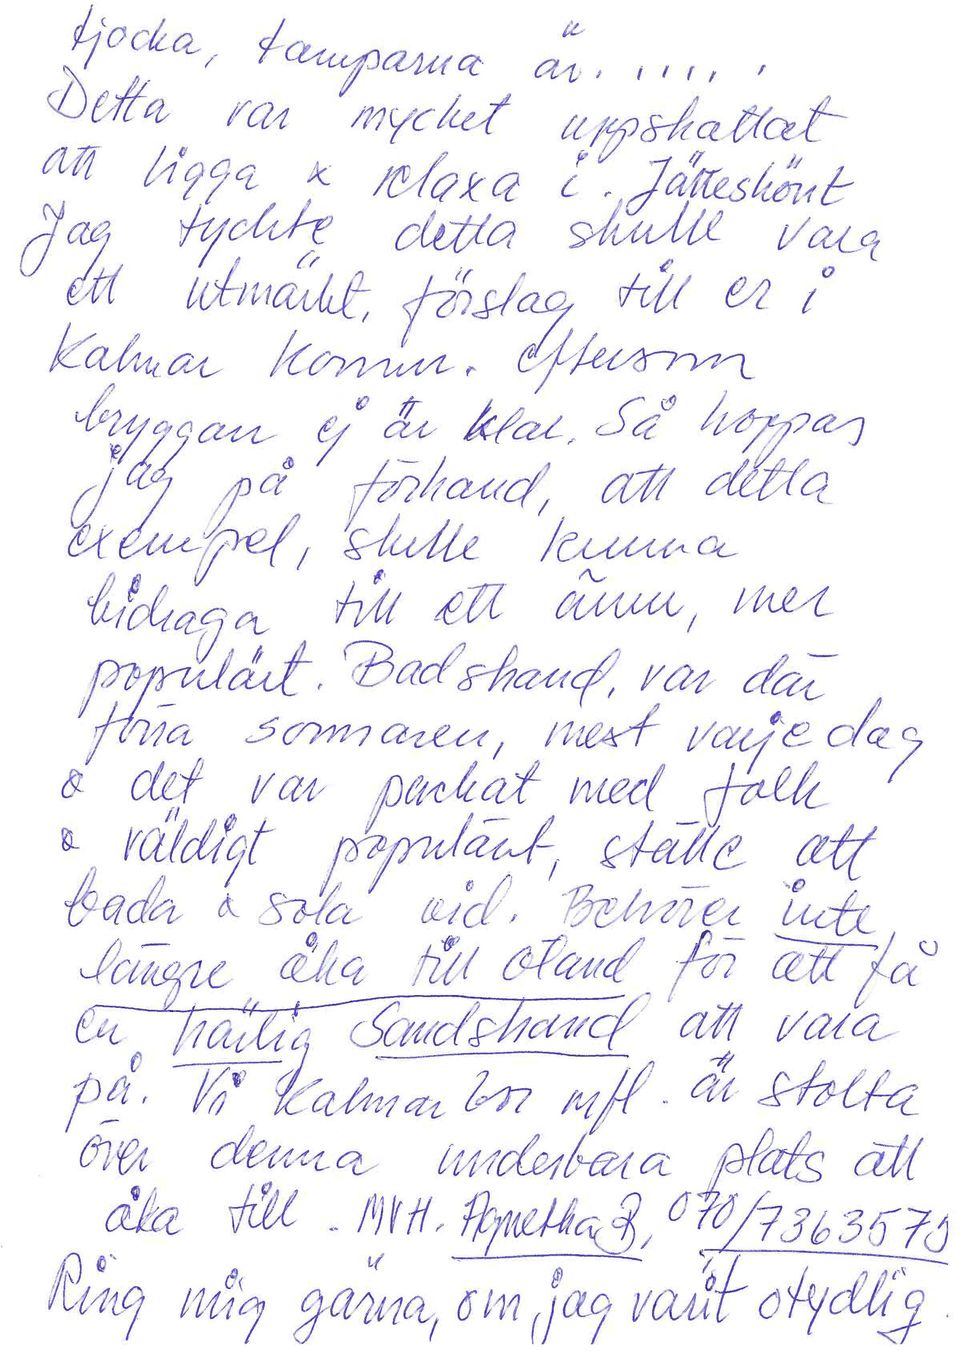 tjocka, tamparna är. , , , , , .
Detta var mycket uppskattat
att ligga & relaxa i. Jätteskönt
Jag tyckte detta skulle vara
ett utmärkt, förslag till er i
Kalmar Komm. eftersom
bryggan ej är klar. Så hoppas
jag på förhand, att detta
exempel, skulle kunna
bidraga till ett ännu, mer
populärt. Badstrand, var där
förra sommaren, mest varje dag
& det var packat med folk
& väldigt populärt, ställe att
bada & sola vid. Behöver inte
längre åka till Öland för att få
en härlig Sandstrand att vara
på. Vi Kalmar bor mfl. är stolta
över denna underbara plats att
åka till. MVH. Agnetha B, 070/7363575
Ring mig gärna, om, jag varit otydlig.